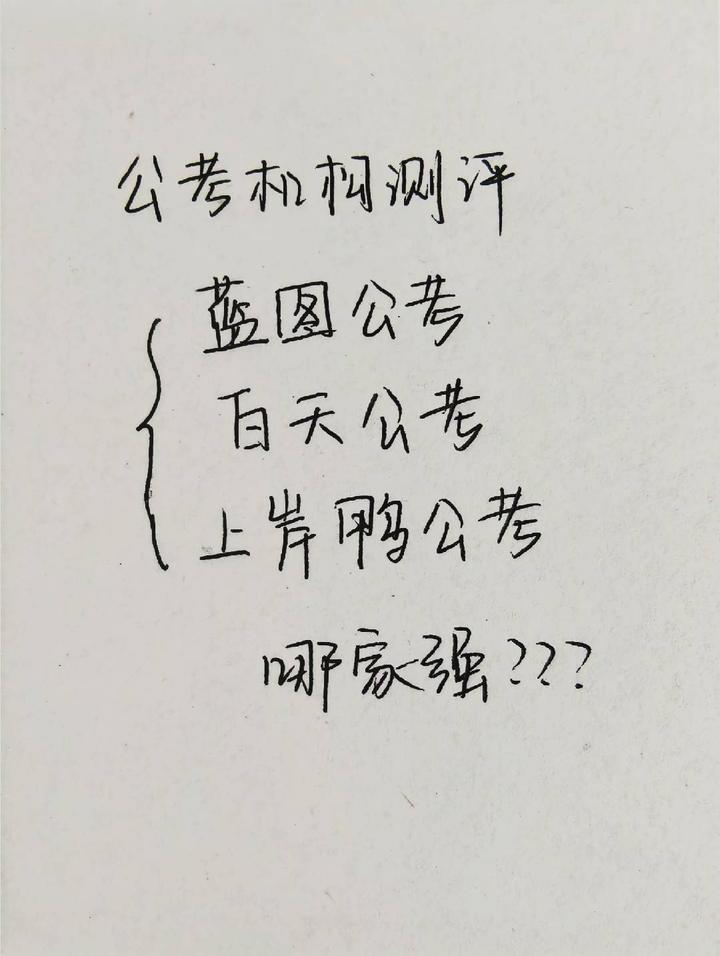 公考机构测评
蓝图公考
百天公考
上岸鸭公考
哪家强???